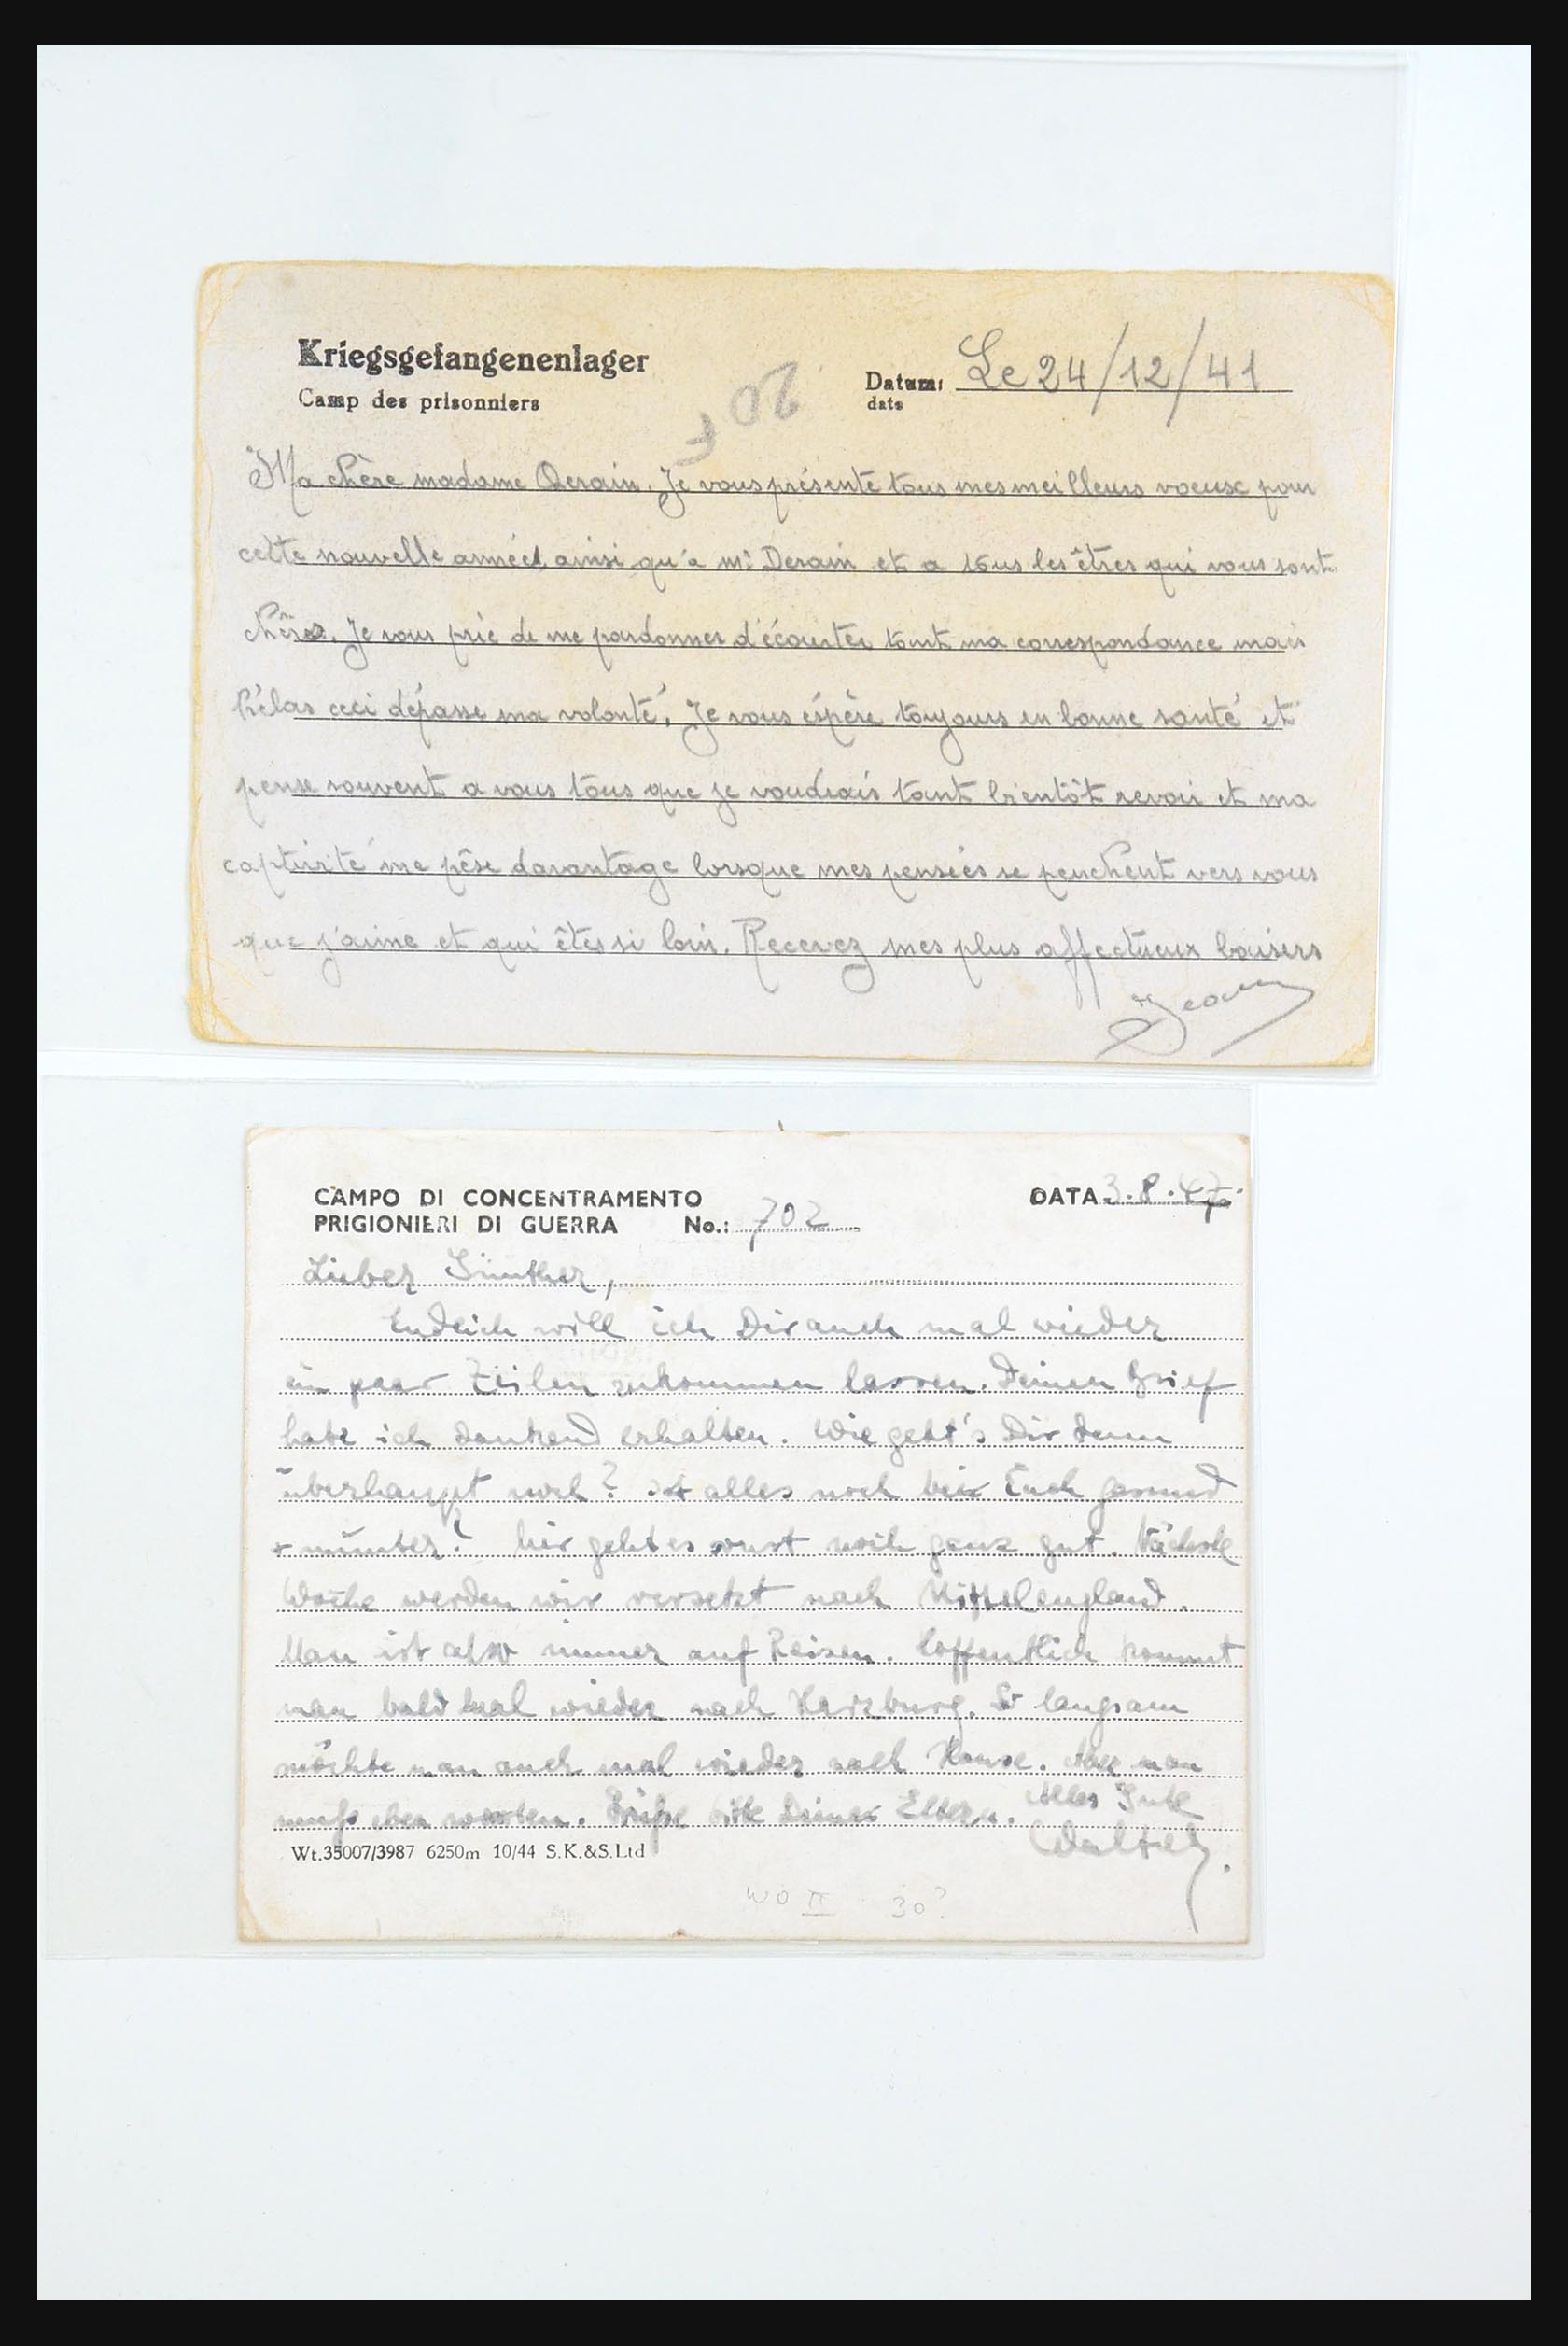 Kriegsgefangenenlager
Camp des prisonniers
Datum: Le 24/12/41
date
20 F
Ma chère madame Derain. Je vous présente tous mes meilleurs voeux pour
cette nouvelle année, ainsi qu'a mr Derain et a tous les êtres qui vous sont
chers. Je vous prie de me pardonner d'écourter tant ma correspondance mais
hélas ceci dépasse ma volonté. Je vous éspère toujours en bonne santé et
pense souvent a vous tous que je voudrais tant bientôt revoir et ma
captivité me pêse davantage lorsque mes pensées se penchent vers vous
que j'aime et qui êtes si loin. Recevez mes plus affectueux baisers
Jean
CAMPO DI CONCENTRAMENTO
PRIGIONIERI DI GUERRA No.: 702
DATA 3.8.47.
Lieber Günther,
Endlich will ich Dir auch mal wieder
ein paar Zeilen zukommen lassen. Deinen Brief
habe ich dankend erhalten. Wie geht's Dir denn
überhaupt noch? Ist alles noch bei Euch gesund
+ munter? Mir geht es sonst noch ganz gut. Nächste
Woche werden wir versetzt nach Mittelengland.
Man ist also immer auf Reisen. Hoffentlich kommt
man bald mal wieder nach Harzburg. So langsam
möchte man auch mal wieder nach Hause. Aber man
muß eben warten. Grüße bitte Deine Eltern. Alles Gute
Walter.
Wt.35007/3987 6250m 10/44 S.K.&S.Ltd
WO II 30?